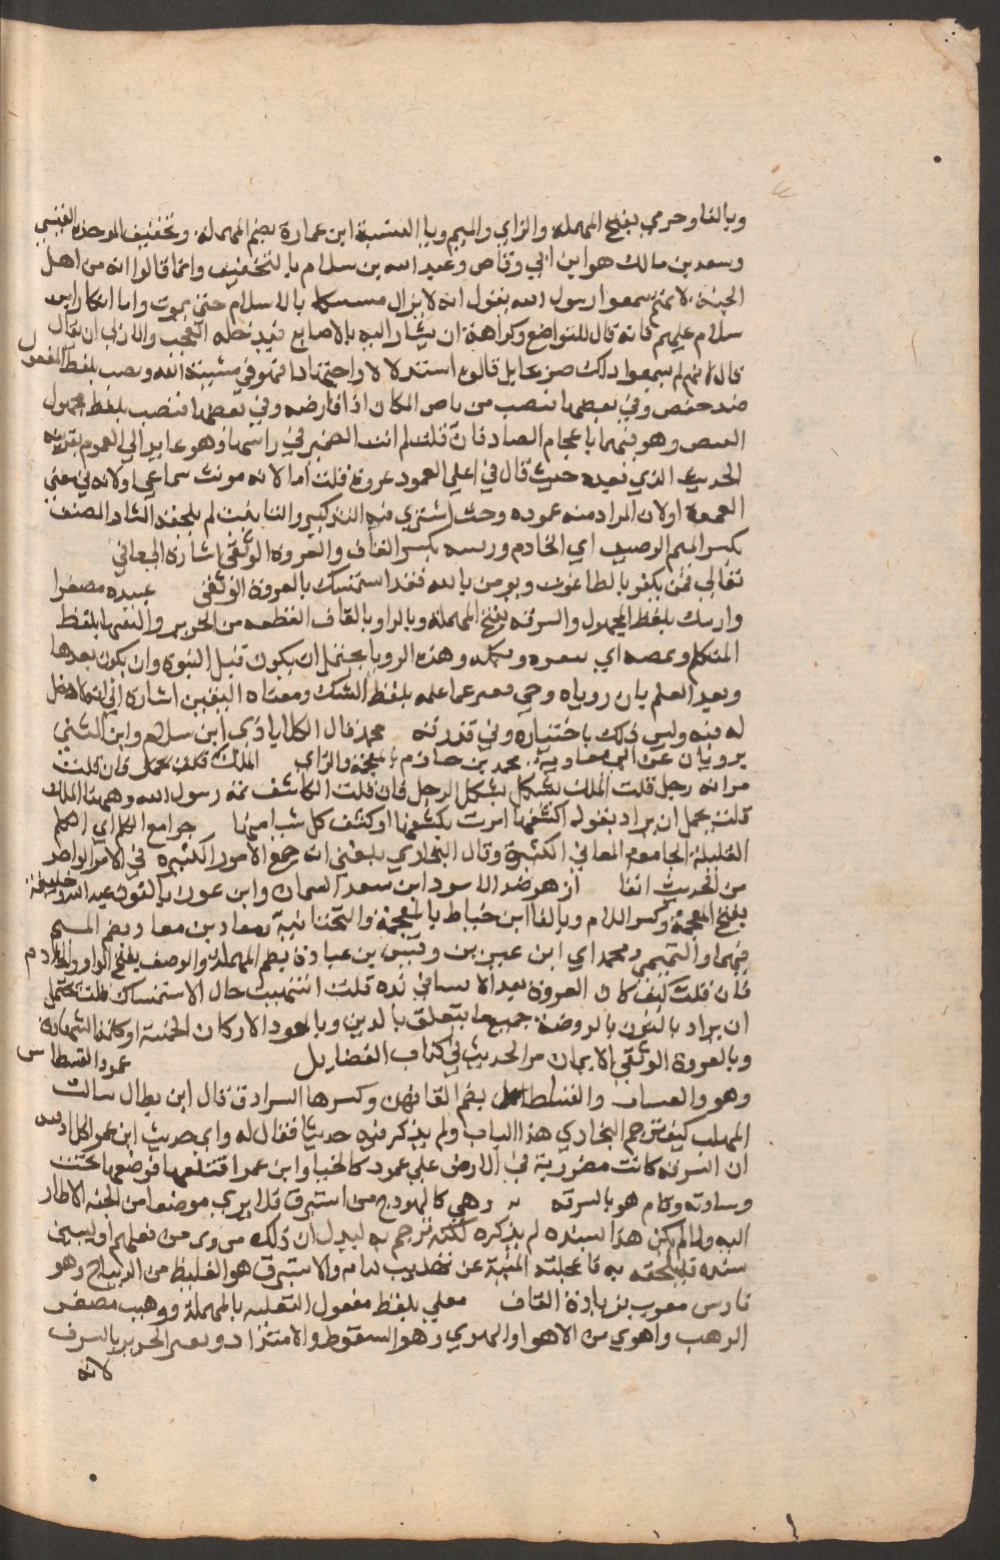 وبالفا وحرمي بفتح المهملة والراي والميم وياالنسبة ابن عمارة بضم المهملة وتخفيف الموحدة القيسي
وسعد بن مالك هو ابن ابي وقاص وعبد الله بن سلام بالتخفيف وانما قالوا انه من اهل
الجنة لانهم سمعوا رسول الله يقول انه لا يزال مستمسكا بالاسلام حتى يموت واما انكار ابن
سلام عليهم فانه قال للتواضع وكراهة ان يشار اليه بالاصابع فيدخله العجب والاولى ان يقال
قال انهم لم يسمعوا ذلك صريحا بل قالوه استدلالا واجتهادا فهو في مشيئة الله ونصب بلفظ المفعول
ضد خفض وفي بعضها انتصب من باص المكان اذا فارضه وفي بعضها فنصب بلفظ مجهول
النصص وهو فيهما باعجام الصاد فان قلت لم انث الضمير في راسها وهو عايد الى العمود بقرينة
الحديث الذي بعده حيث قال في اعلى العمود عروة قلت اما لانه مونث سماعي اولانه في معنى
العمدة اولان المراد منه عموده وحيث استوي فيه التذكير والتانيث لم يلحقه التاء المنصف
بكسر الميم الوصيف اي الخادم ورقيت بكسر القاف والعروة الوثقى اشارة الى معاني
تعالى فمن يكفر بالطاغوت ويومن بالله فقد استمسك بالعروة الوثقى عبيده مصغرا
واريتك بلفظ المجهول والسرقة بفتح المهملة وبالرا وبالقاف القطعة من الحرير والنفيها بلفظ
المتكلم ويمضه اي ينفذه ويكمله وهذه الرويا يحتمل ان يكون قبل النبوة وان يكون بعدها
وبعد العلم بان روياه وحي فعبر عما علمه بلفظ الشك ومعناه اليقين اشارة الى انه لا دخل
له فيه وليس ذلك باختياره وفي قدرته محمد قال الكلاباذي ابن سلام وابن المثنى
يرويان عن ابي معاوية محمد بن حازم بالمعجمة والزاي الملك فان قلت
مرانه رجل قلت الملك يشكل بشكل الرجل فان قلت الكاشف ثمة رسول الله وههنا الملك
قلت يحمل ان يراد بقوله اكشفها امرت بكشفها او كشف كل شيا منها جوامع الكلم اي الكلم
القليلة الجامعة المعاني الكثيرة وقال البخاري بلغني انه جمع الامور الكثيرة في الامر الواحد
من الحديث انفا ازهر ضد الاسود ابن سعد السمان وابن عون بالنون عبد الله وخليفة
بفتح المعجمة وكسر اللام وبالفا ابن خياط بالمعجمة والتحتانية ومعاذ بن معاذ بضم الميم
فيهما والتميمي ومحمد اي ابن سيرين وقيس بن عبادة بضم المهملة والوصف بفتح الواو الخادم
فان قلت كيف كان العروة بعد الانتباه في يده قلت انتبهت حال الاستمساك قلت يحتمل
ان يراد بالعين بالروضة جميع ما يتعلق بالدين وبالعمود الاركان الخمسة او كلمة الشهادة
وبالعروة الوثقى الايمان مر الحديث في كتاب الفضايل عمود الفسطاس
وهو والفساط والفسطاط بضم الفا فيهن وكسرها السرادق قال ابن بطال سالت
المهلب كيف ترجم البخاري هذا الباب ولم يذكر فيه حديثا فقال له راي حديث ابن عمر اكمل اذ فيه
ان السرقة كانت مضروبة في الارض على عمود كالخبا وابن عمر اقتلعها فوضعها تحت
وسادته وقام هو بالسرقة وهي كالهودج من استبرق فلا يري موضعا من الجنة الا طار
اليه ولما لم يكن هذا بسنده لم يذكره لكنه ترجم به ليدل ان ذلك مروي من فعلهم او ليبين
سنده فيلحقه به فاعجلته المنية عن تهذيب كتابه والاستبرق هو الغليظ من الديباج وهو
فارسي معرب بزيادة القاف معلي بلفظ مفعول التعلية بالمهملة ووهيب مصغر
الوهب واهوي من الاهوا والهوي وهو السقوط والامتداد وتعبير الحرير بالشرف
لانه